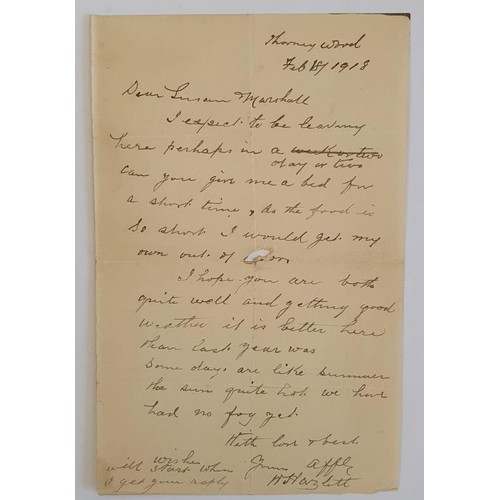 Thorney Wood
Feb 18/1918
Dear Susan & Marshall
I expect to be leaving
here perhaps in a week or two
day or two
can you give me a bed for
a short time, as the food is
so short I would get my
own out of
I hope you are both
quite well and getting good
weather it is better here
than last year was
Some days are like summer
the sun quite hot we have
had no fog yet.
With love & best
wishes
Yours Affl
H Hazlett
will start when
I get your reply